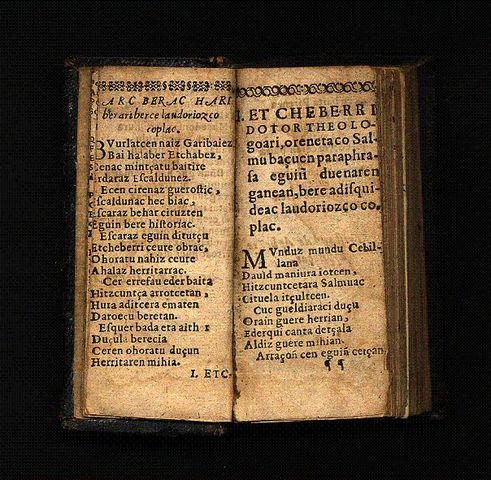 ARC BERAC HARI
berari berce laudoriozco
coplac.
BVurlatcen naiz Garibaiez
Bai halaber Etchabez,
Cenac mintçatu baitire
Erdaraz Escaldunez.
Ecen citenaz gueroztic,
Escaldunac hec biac,
Escaraz behar cituzten
Eguin bere historiac.
Escaraz eguin ditutçu
Etcheberri ceure obrac,
Ohoratu nahiz ceure
Ahalaz herritarrac.
Cer errefau eder baita
Hitzcuntça arrotcetan,
Hura aditcera ematen
Daroecu beretan.
Esquer bada eta aith
Duçula berecia
Ceren ohoratu duçun
Herritaren mihia.
I. ETC-
I. ETCHEBERRI
DOTOR THEOLO-
goari, orenetaco Sal-
mu baçuen paraphra-
sa eguiñ duenaren
ganean, bere adisqui-
deac laudoriozço co-
plac.
MVnduz mundu Cebil-
lana
Dauid maniura iotcen,
Hitzcuntcetara Salmuac
Cituela itçultcen.
Cuc gueldiaraci duçu
Orain guere herrian,
Ederqui canta detçala
Aldiz guere mihian.
Arraçoñ cen eguiñ cetçan
¶ ¶